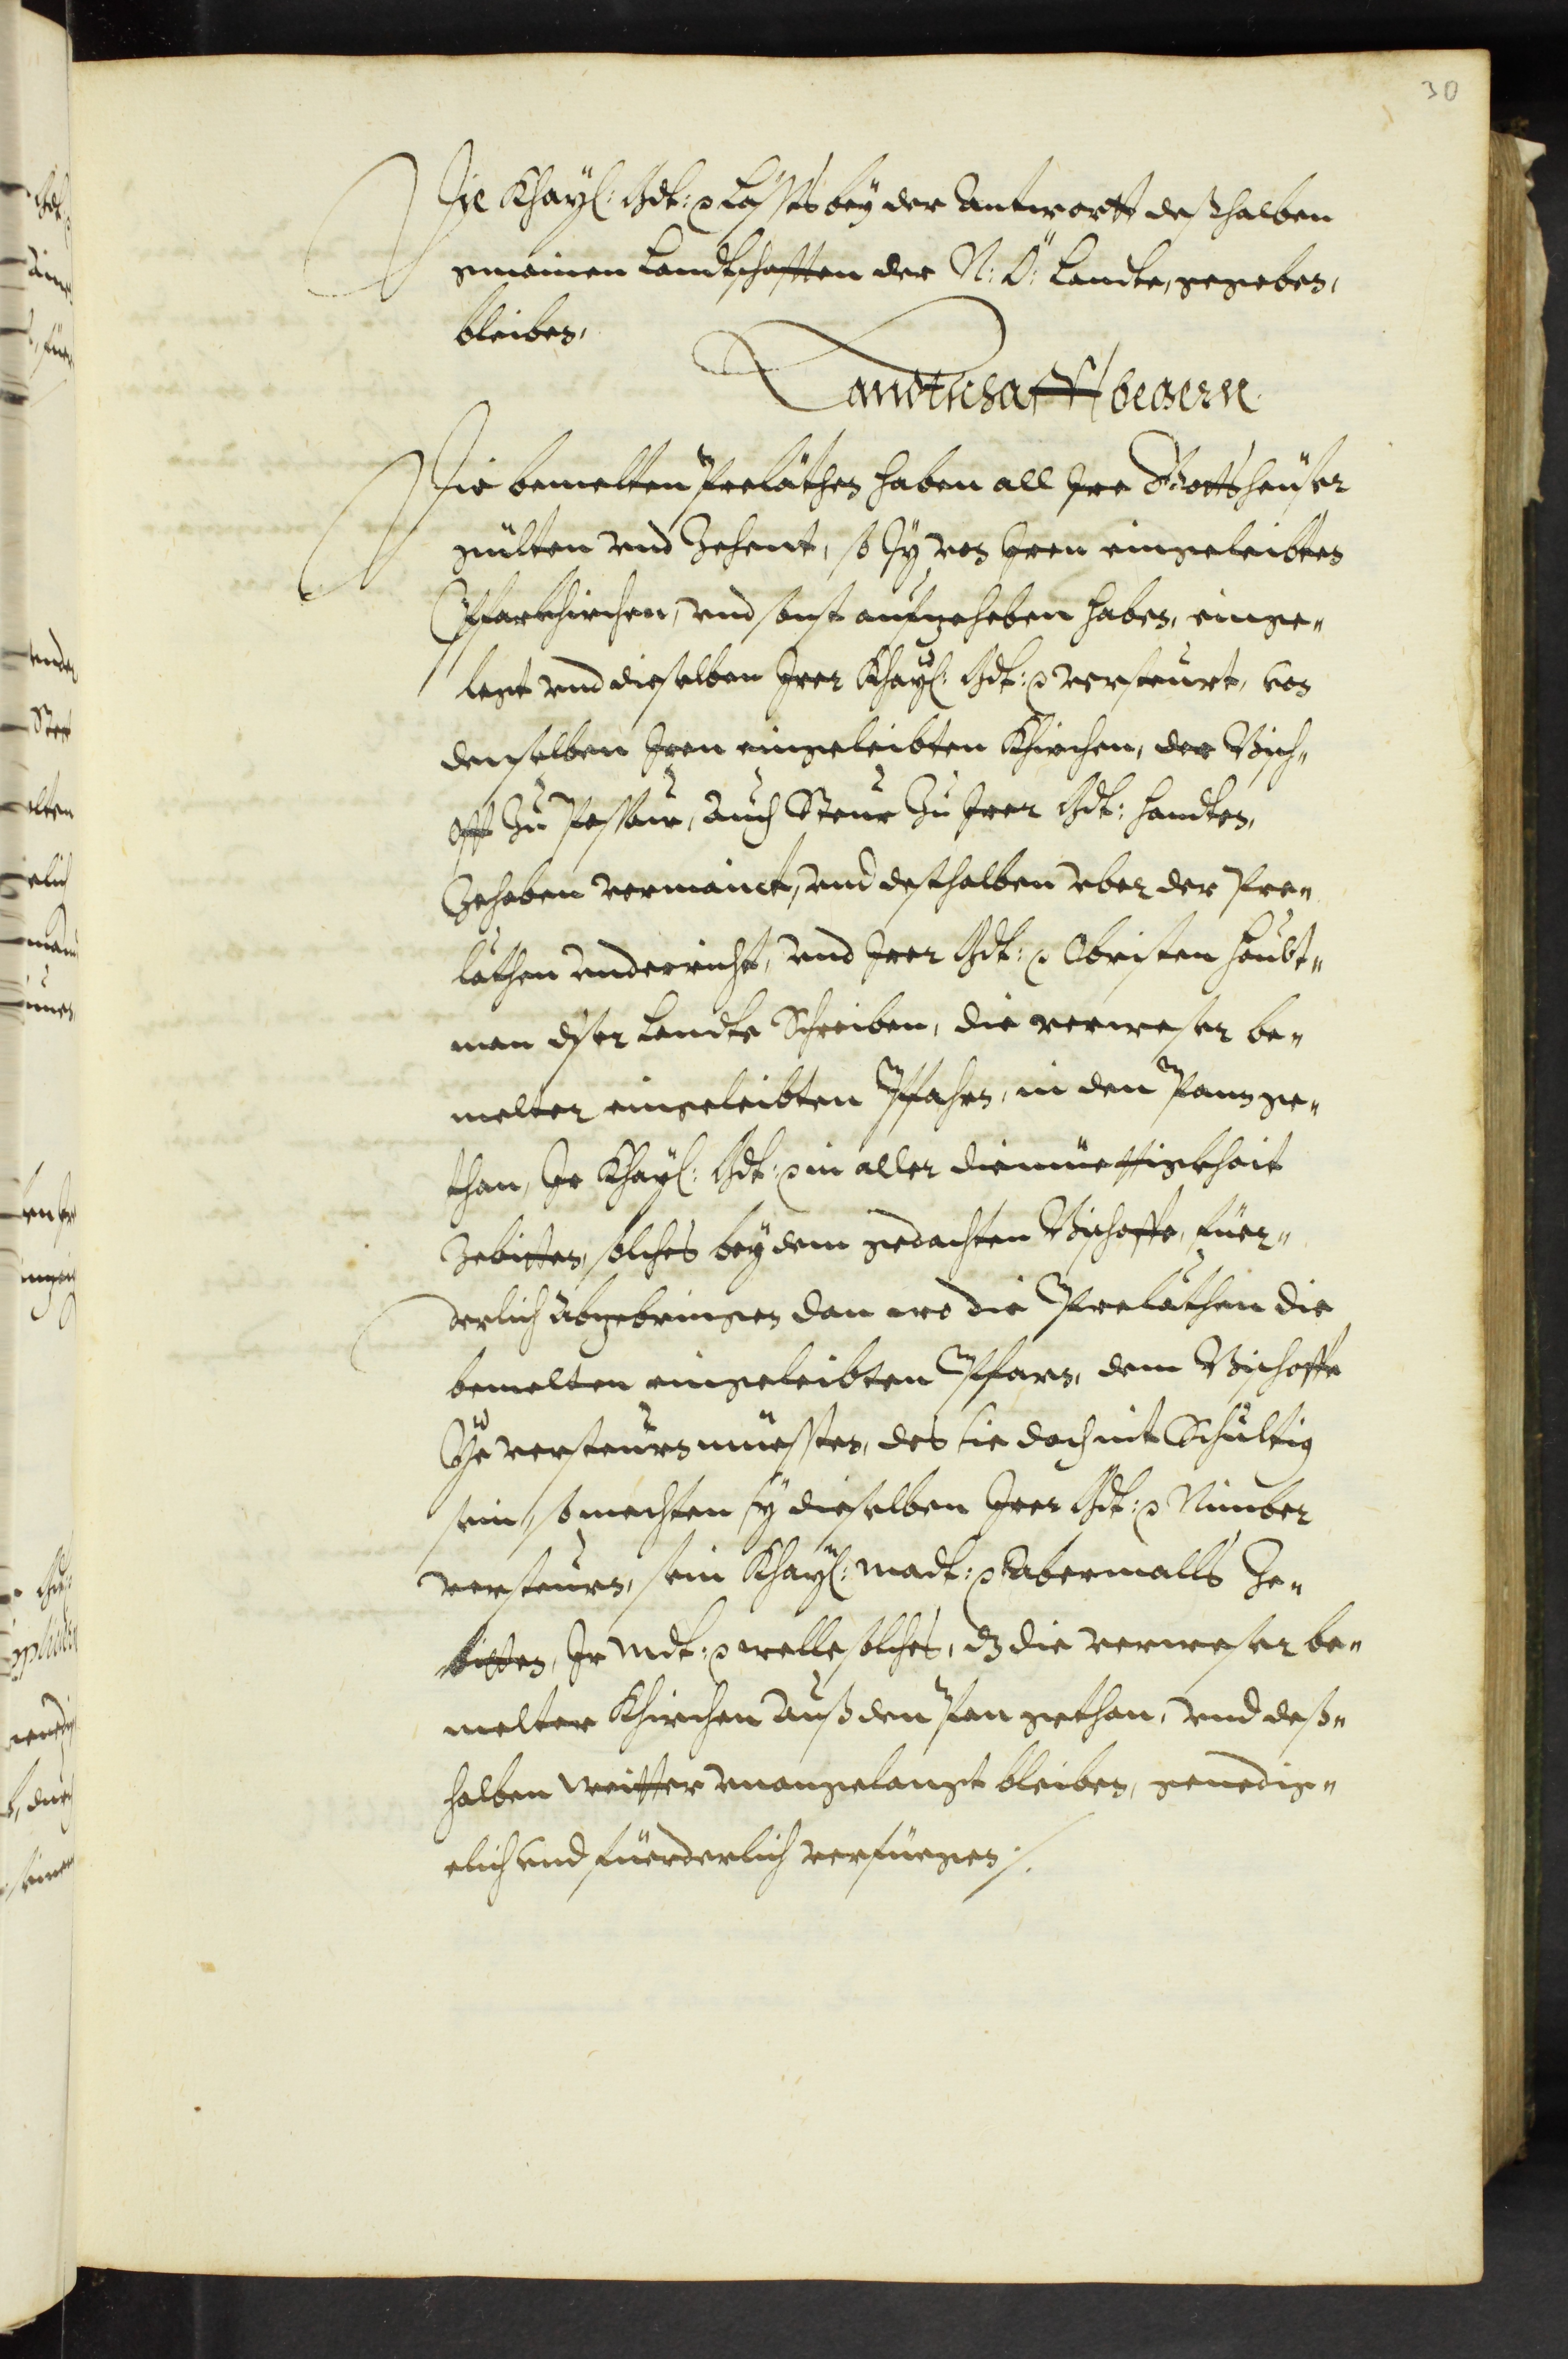 30
Die Khayl: Mdt: p lassts bey der Antwortt deßhalben
gmainen Landtschafften der N: Ö: Lande, gegeben,
bleiben,
Landtschafft begern.
Die bemelten Preläthen haben all Ire Gottsheuser
gülten vnd Zehent, so Sy von Iren eingeleibten
Pfarkhirchen, vnd sonst aufzeheben haben, einge„
legt vnd dieselben Irer Khayl: Mdt: p versteurt, von
denselben Iren eingeleibten Khirchen, der Bisch„
off Zu Passaw, auch Steur Zu Irer Mdt: handten,
Zehaben vermaint, vnd desthalben vber der Pre„
läthen vnderricht, vnd Irer Mdt: p Obristen Haubt„
man diser Lande Schreiben, die verweser be„
melter eingeleibten Pfahrn, in den Pann ge„
than, Ir Khayl: Mdt: p in aller diemüettigkhait
Zebitten, solches bey dem gedachten Bischoffe, füer„
derlich abzebringen dan wo die Preläthen die
bemelten eingeleibten Pfarrn, dem Bischoffe
Ye versteurn müessten, des sie doch nit Schultig
sein, so mechten sy dieselben Irer Mdt: p Nimber
versteurn, sein Khayl: Madt: p abermalls Ze„
bitten, Ir Mdt: p welle solches, dz die verweser be„
melter Khirchen auß den Pan gethan, vnd deß„
halben weitter vnangelangt bleiben, genedig„
elich vnd füerderlich verfüegen /.